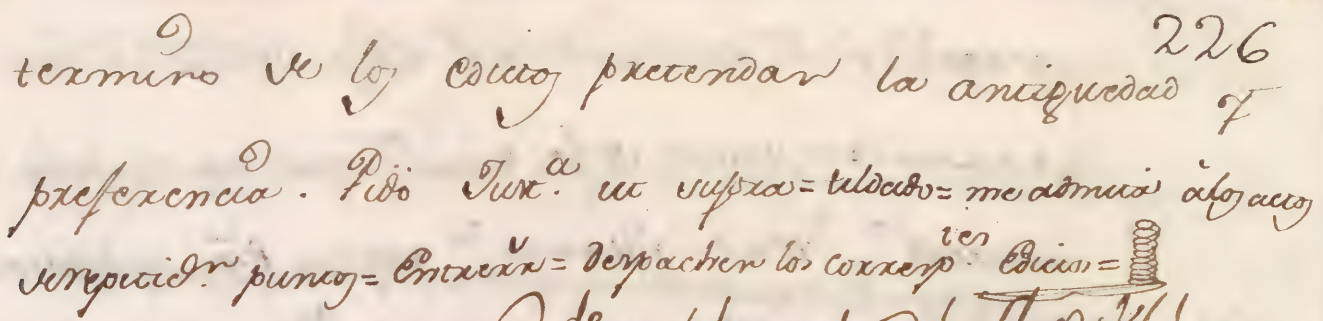 226
termino de los edictos pretendan la antiguedad y
preferencia. Pido Just.ª ut supra = tildado = me admita â los actos
de repetic.ⁿ puntos = Entrerr.ˢ = despachen los corresp.ᵗᵉˢ Edictos =